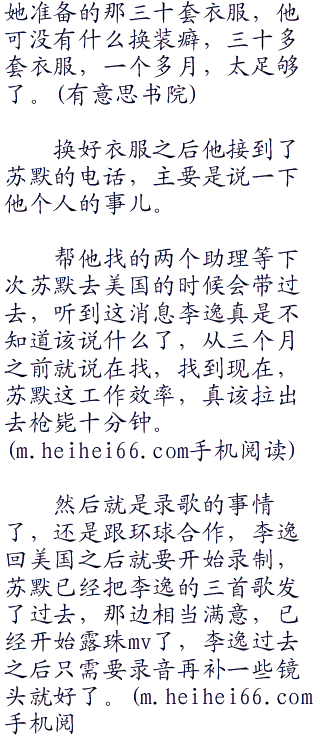 她准备的那三十套衣服，他
可没有什么换装癖，三十多
套衣服，一个多月，太足够
了。(有意思书院)
换好衣服之后他接到了
苏默的电话，主要是说一下
他个人的事儿。
帮他找的两个助理等下
次苏默去美国的时候会带过
去，听到这消息李逸真是不
知道该说什么了，从三个月
之前就说在找，找到现在，
苏默这工作效率，真该拉出
去枪毙十分钟。
(m.heihei66.com手机阅读)
然后就是录歌的事情
了，还是跟环球合作，李逸
回美国之后就要开始录制，
苏默已经把李逸的三首歌发
了过去，那边相当满意，已
经开始露珠mv了，李逸过去
之后只需要录音再补一些镜
头就好了。(m.heihei66.com
手机阅